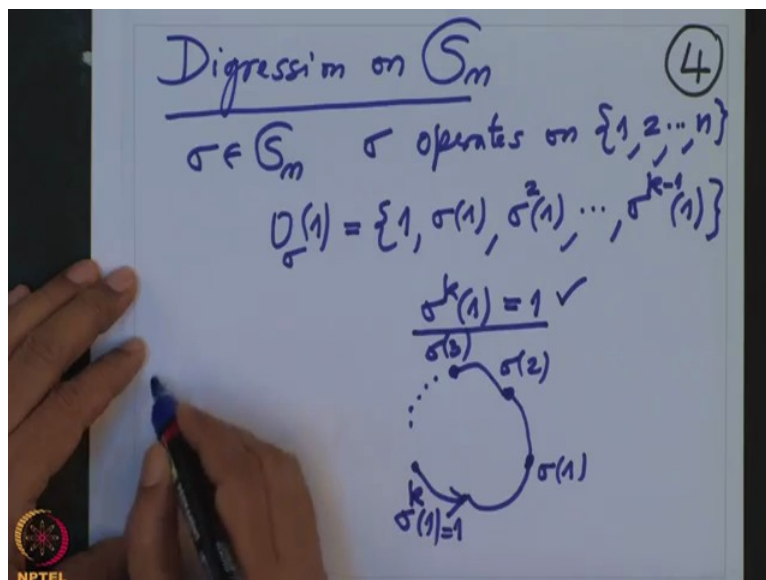 Digression on 𝔖n
4
σ ∈ 𝔖n σ operates on {1, 2, ..., n}
Oσ(1) = {1, σ(1), σ²(1), ..., σᵏ⁻¹(1)}
σᵏ(1) = 1 ✓
σ(3)
σ(2)
σ(1)
σᵏ(1)=1
NPTEL